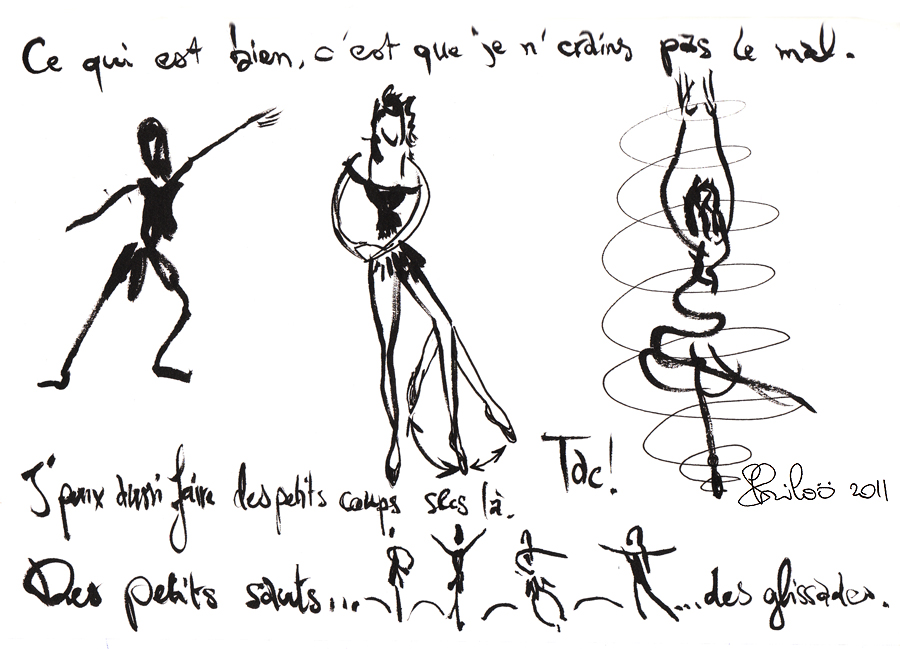 Ce qui est bien, c'est que je n'crains pas le mal.
J'peux aussi faire des petits coups secs là.
Tac!
2011
Des petits sauts... ...des glissades.